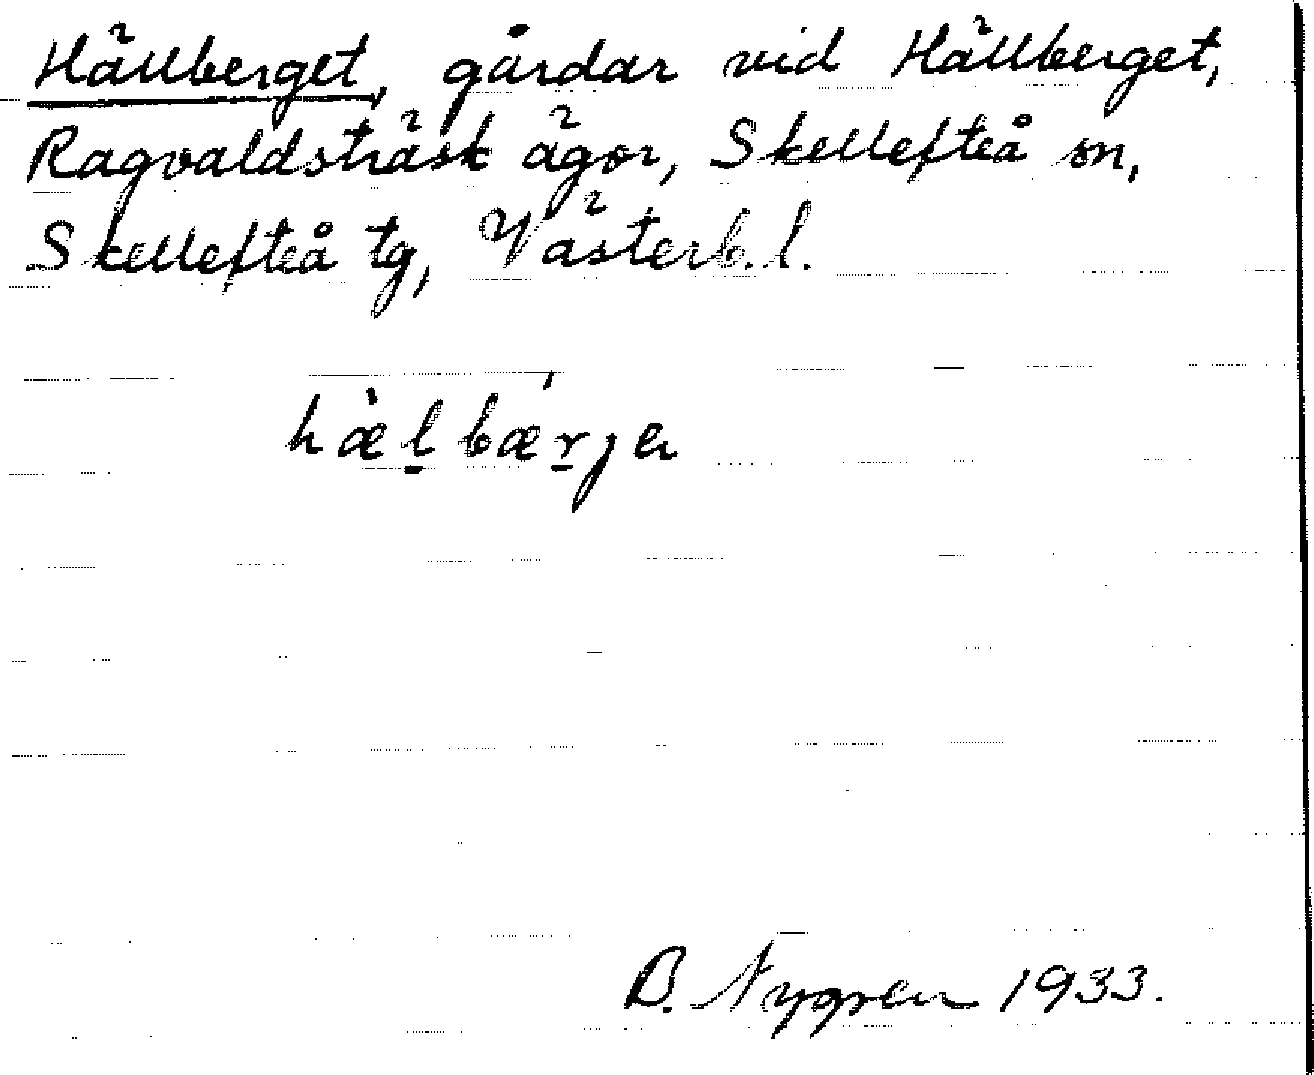 Hällberget, gårdar vid Hällberget,
Ragvaldsträsk ägor, Skellefteå sn,
Skellefteå tg, Västerb. l.
hæ̀l̠bǽr̠jɑ
B. Nygren 1933.